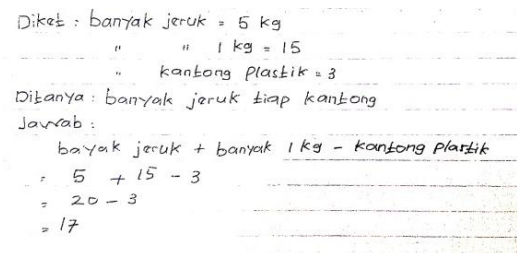 Diket : banyak jeruk = 5 kg
" " 1 kg = 15
" kantong plastik = 3
Ditanya : banyak jeruk tiap kantong
Jawab :
bayak jeruk + banyak 1 kg - kantong plastik
= 5 + 15 - 3
= 20 - 3
= 17